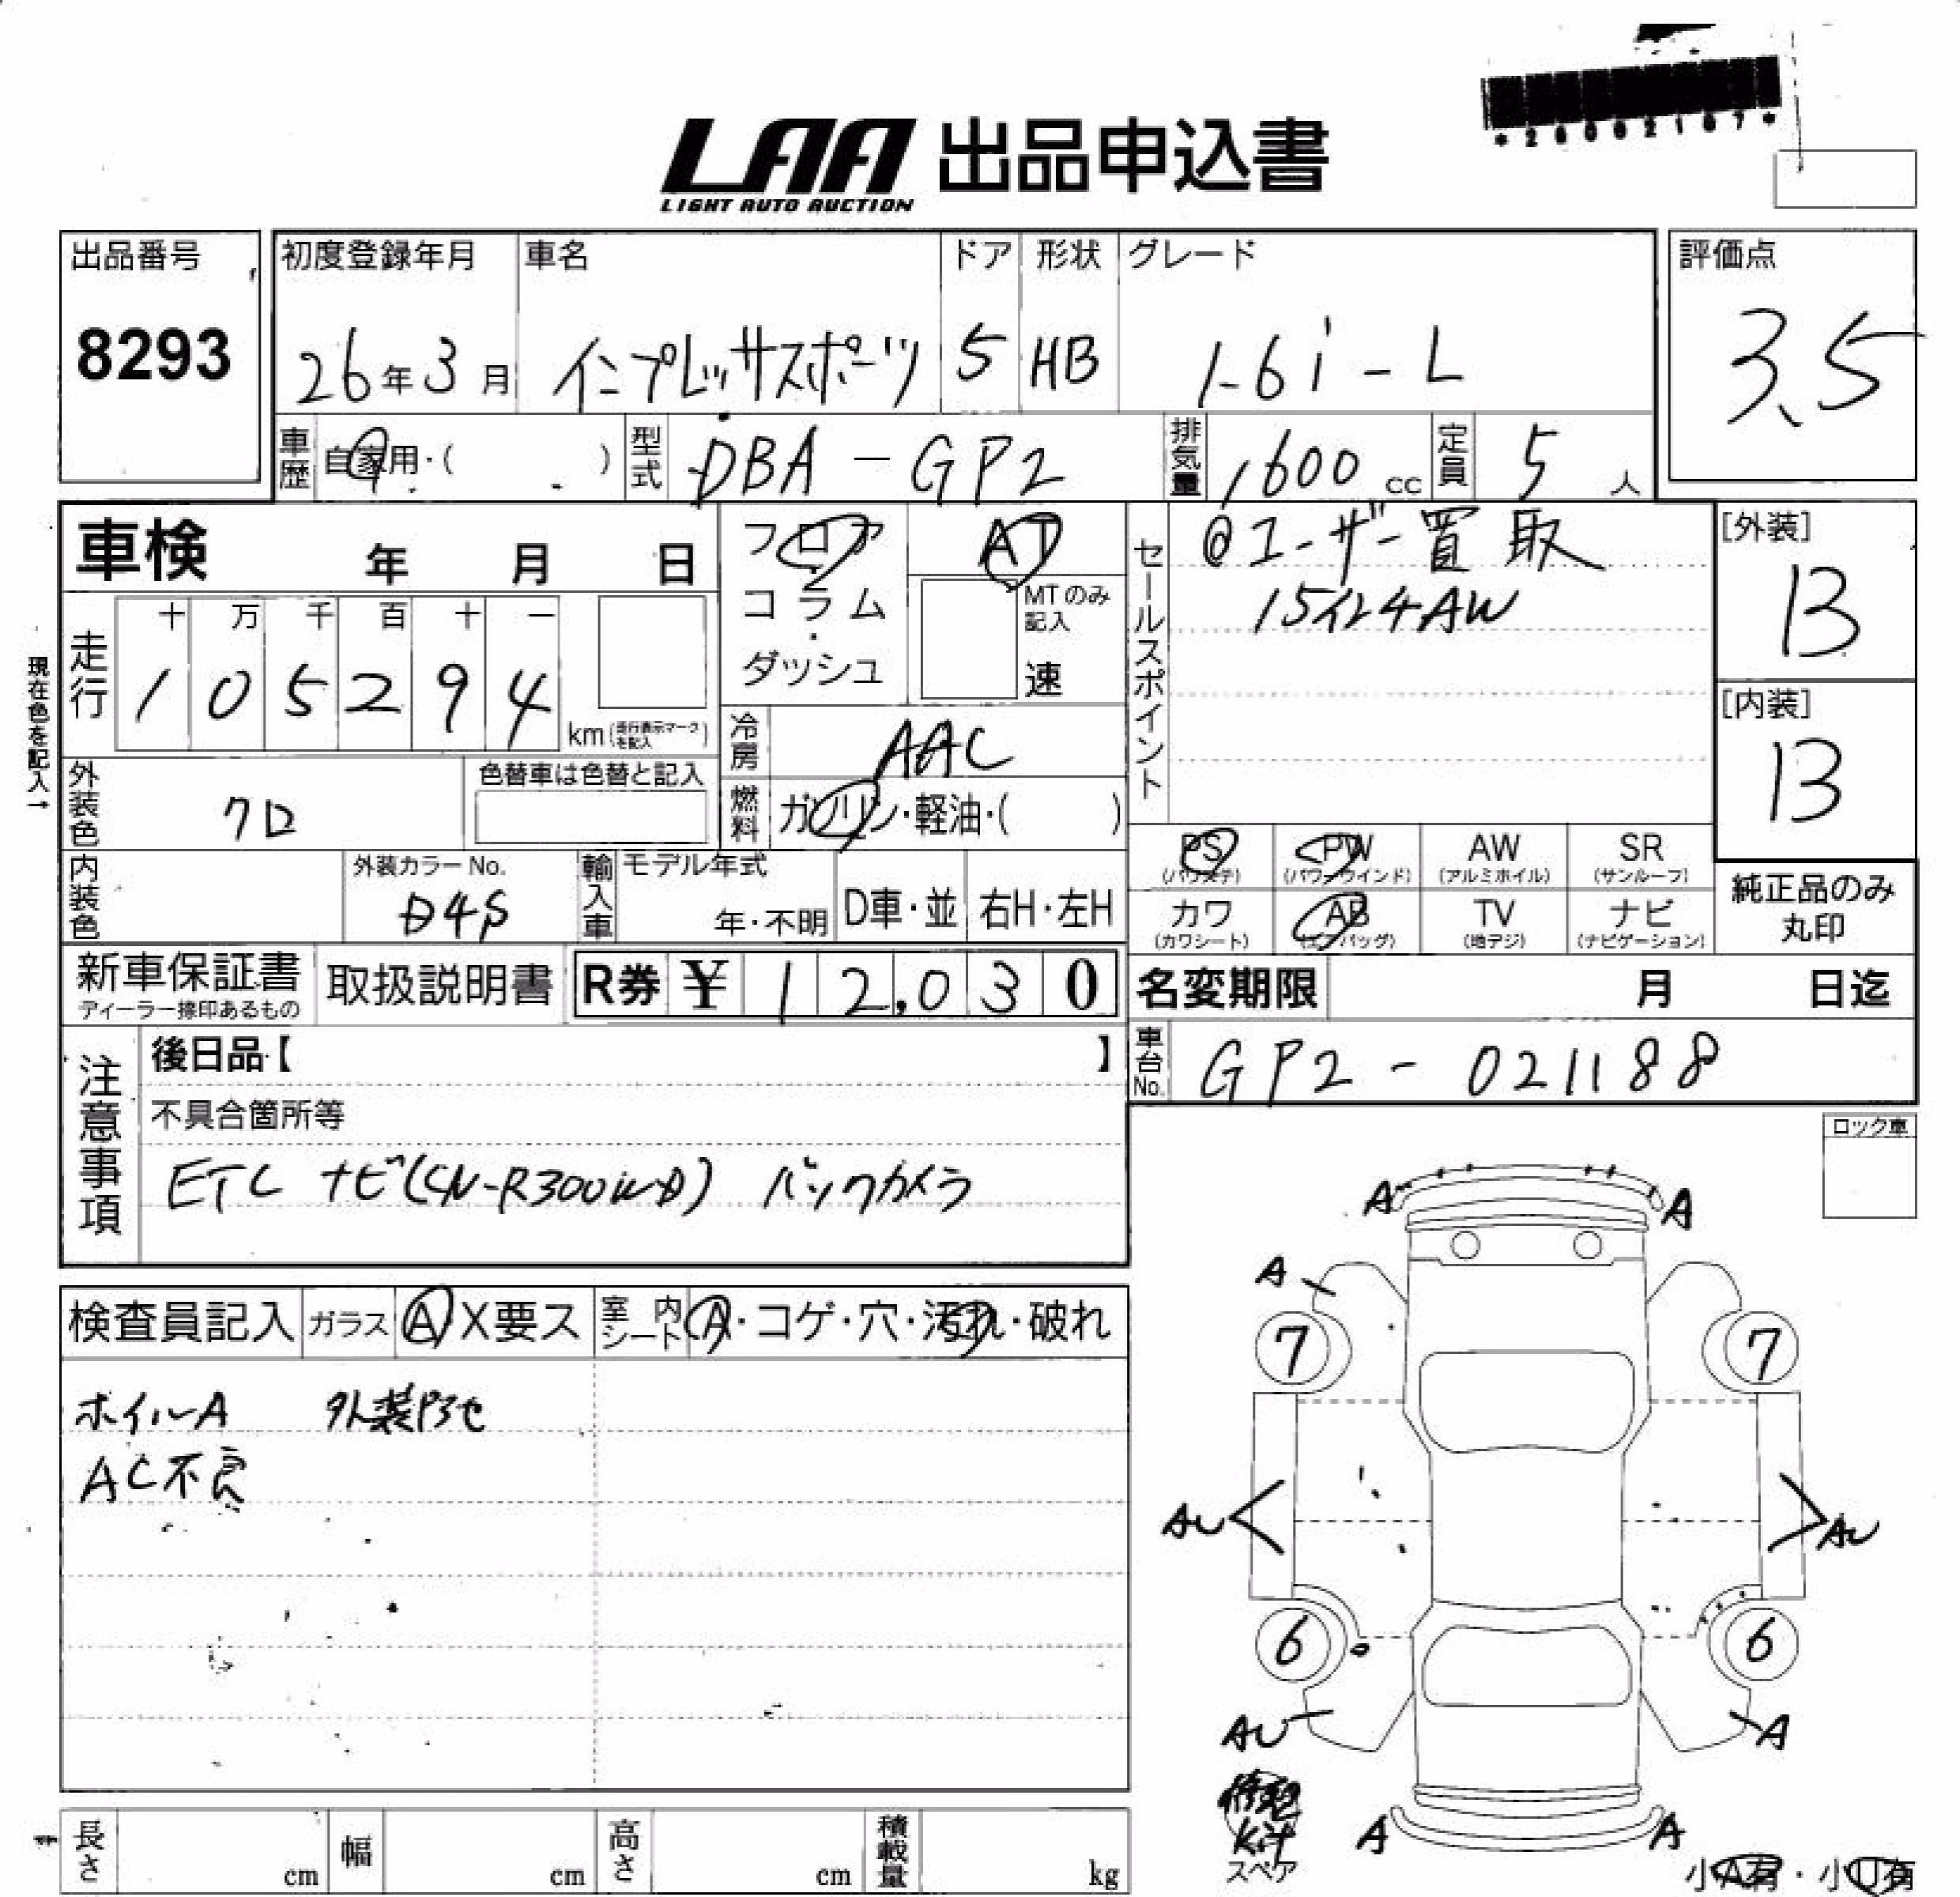 *26002107*
LAA 出品申込書
LIGHT AUTO AUCTION
出品番号 初度登録年月 車名 ドア 形状 グレード 評価点
8293 26年3月 インプレッサスポーツ 5 HB 1-6i-L 3.5
車歴 自家用・( ) 型式 DBA-GP2 排気量 1600cc 定員 5人
車検 年 月 日 フロア AT セールスポイント @ユーザー買取 [外装]
コラム MTのみ記入 15インチAW B
ダッシュ 速
走行 十 万 千 百 十 一
1 0 5 2 9 4 km(走行表示マークを記入)
現在色を記入→
[内装]
B
冷房 AAC
外装色 クロ 色替車は色替と記入 燃料 ガソリン・軽油・( )
PS PW AW SR
(パワステ) (パワーウインド) (アルミホイル) (サンルーフ)
内装色 外装カラーNo. D4S 輸入車 モデル年式 年・不明 D車・並 右H・左H
カワ AB TV ナビ 純正品のみ
(カワシート) (エアバッグ) (地デジ) (ナビゲーション) 丸印
新車保証書 取扱説明書 R券 ¥12,030 名変期限 月 日迄
ディーラー捺印あるもの
注意事項 後日品【 】 車台No. GP2-021188
不具合箇所等
ETC ナビ(CN-R300WD) バックカメラ
ロック車
A A
A
検査員記入 ガラス A X要ス 室内シート A・コゲ・穴・汚れ・破れ
7 7
ホイルA 外装
AC不良
AU AU
6 6
AU A
修理
Kit
スペア
A A
小A有・小U有
長さ cm 幅 cm 高さ cm 積載量 kg